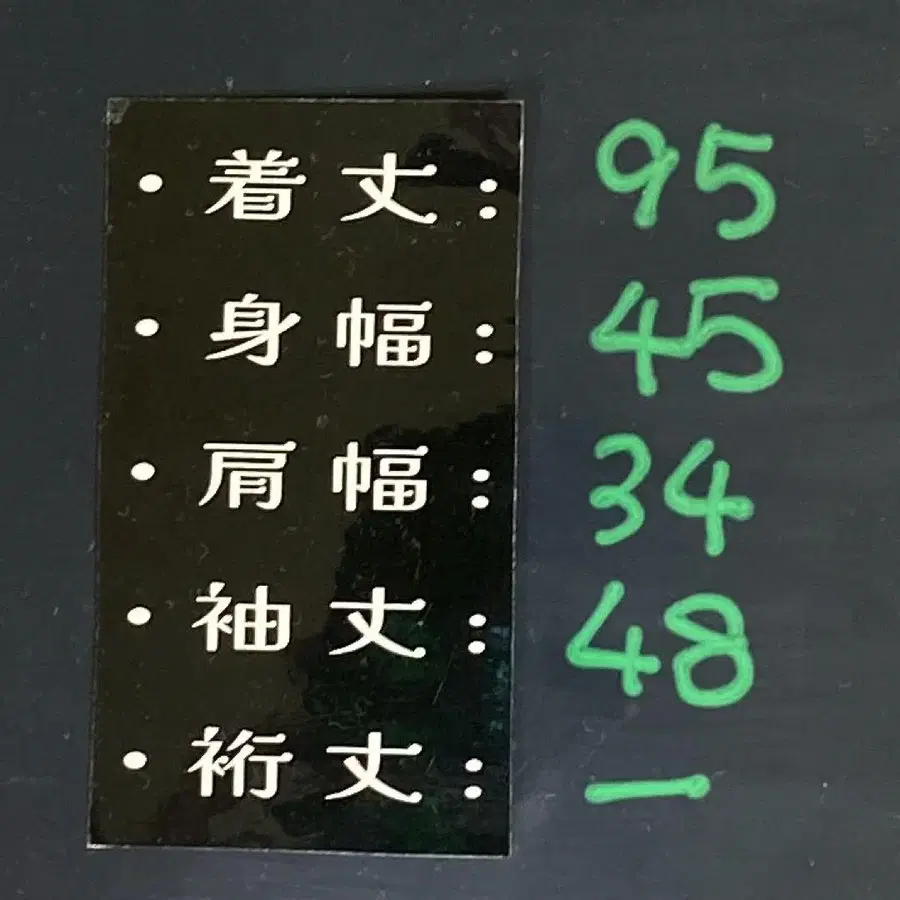 ・着丈: 95
・身幅: 45
・肩幅: 34
・袖丈: 48
・裄丈: －